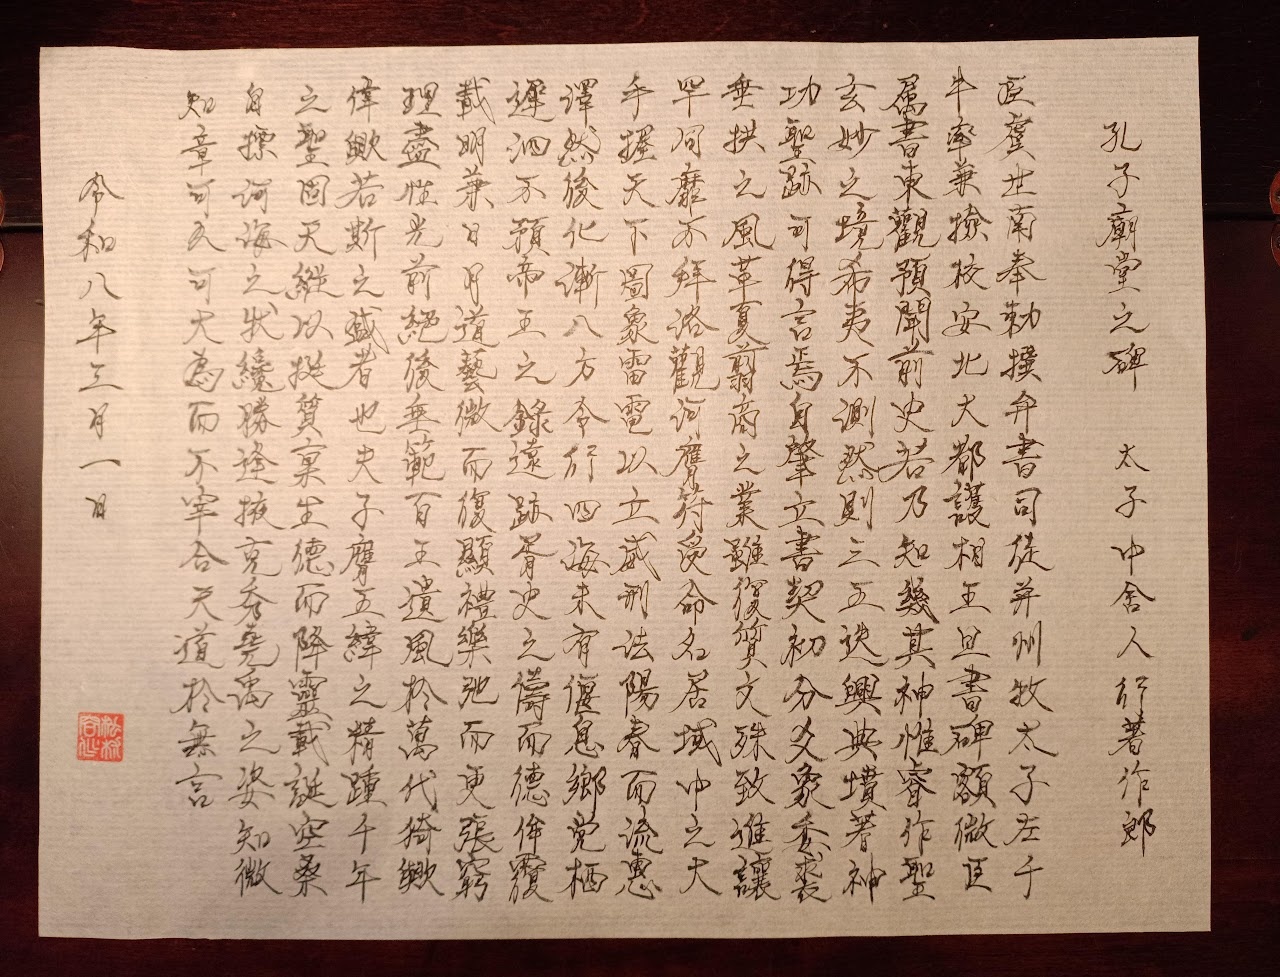 孔子廟堂之碑 太子中舍人行著作郎
臣虞世南奉勅撰弁書司徒并州牧太子左千
牛率兼撿校安北大都護相王旦書碑額微臣
属書東觀預聞前史若乃知幾其神惟睿作聖
玄妙之境希夷不測然則三五迭興典墳著神
功聖跡可得言焉自肇立書契初分爻象委裘
垂拱之風革夏翦商之業雖復質文殊致進讓
罕同靡不拜洛觀河膺符受命名居域中之大
手握天下圖象雷電以立威刑法陽春而流惠
澤然後化漸八方令行四海未有偃息鄉党栖
遲泗不預帝王之錄遠跡胥史之儔而德侔覆
載明兼日月道藝微而復顯禮樂弛而更張窮
理盡性光前絕後垂範百王遺風於萬代猗歟
偉歟若斯之盛者也夫子膺五緯之精踵千年
之聖固天縱以挺質稟生德而降靈載誕空桑
自摽河海之狀纔勝逢掖克秀堯禹之姿知微
知章可久可大為而不宰合天道於無言
令和八年三月一日